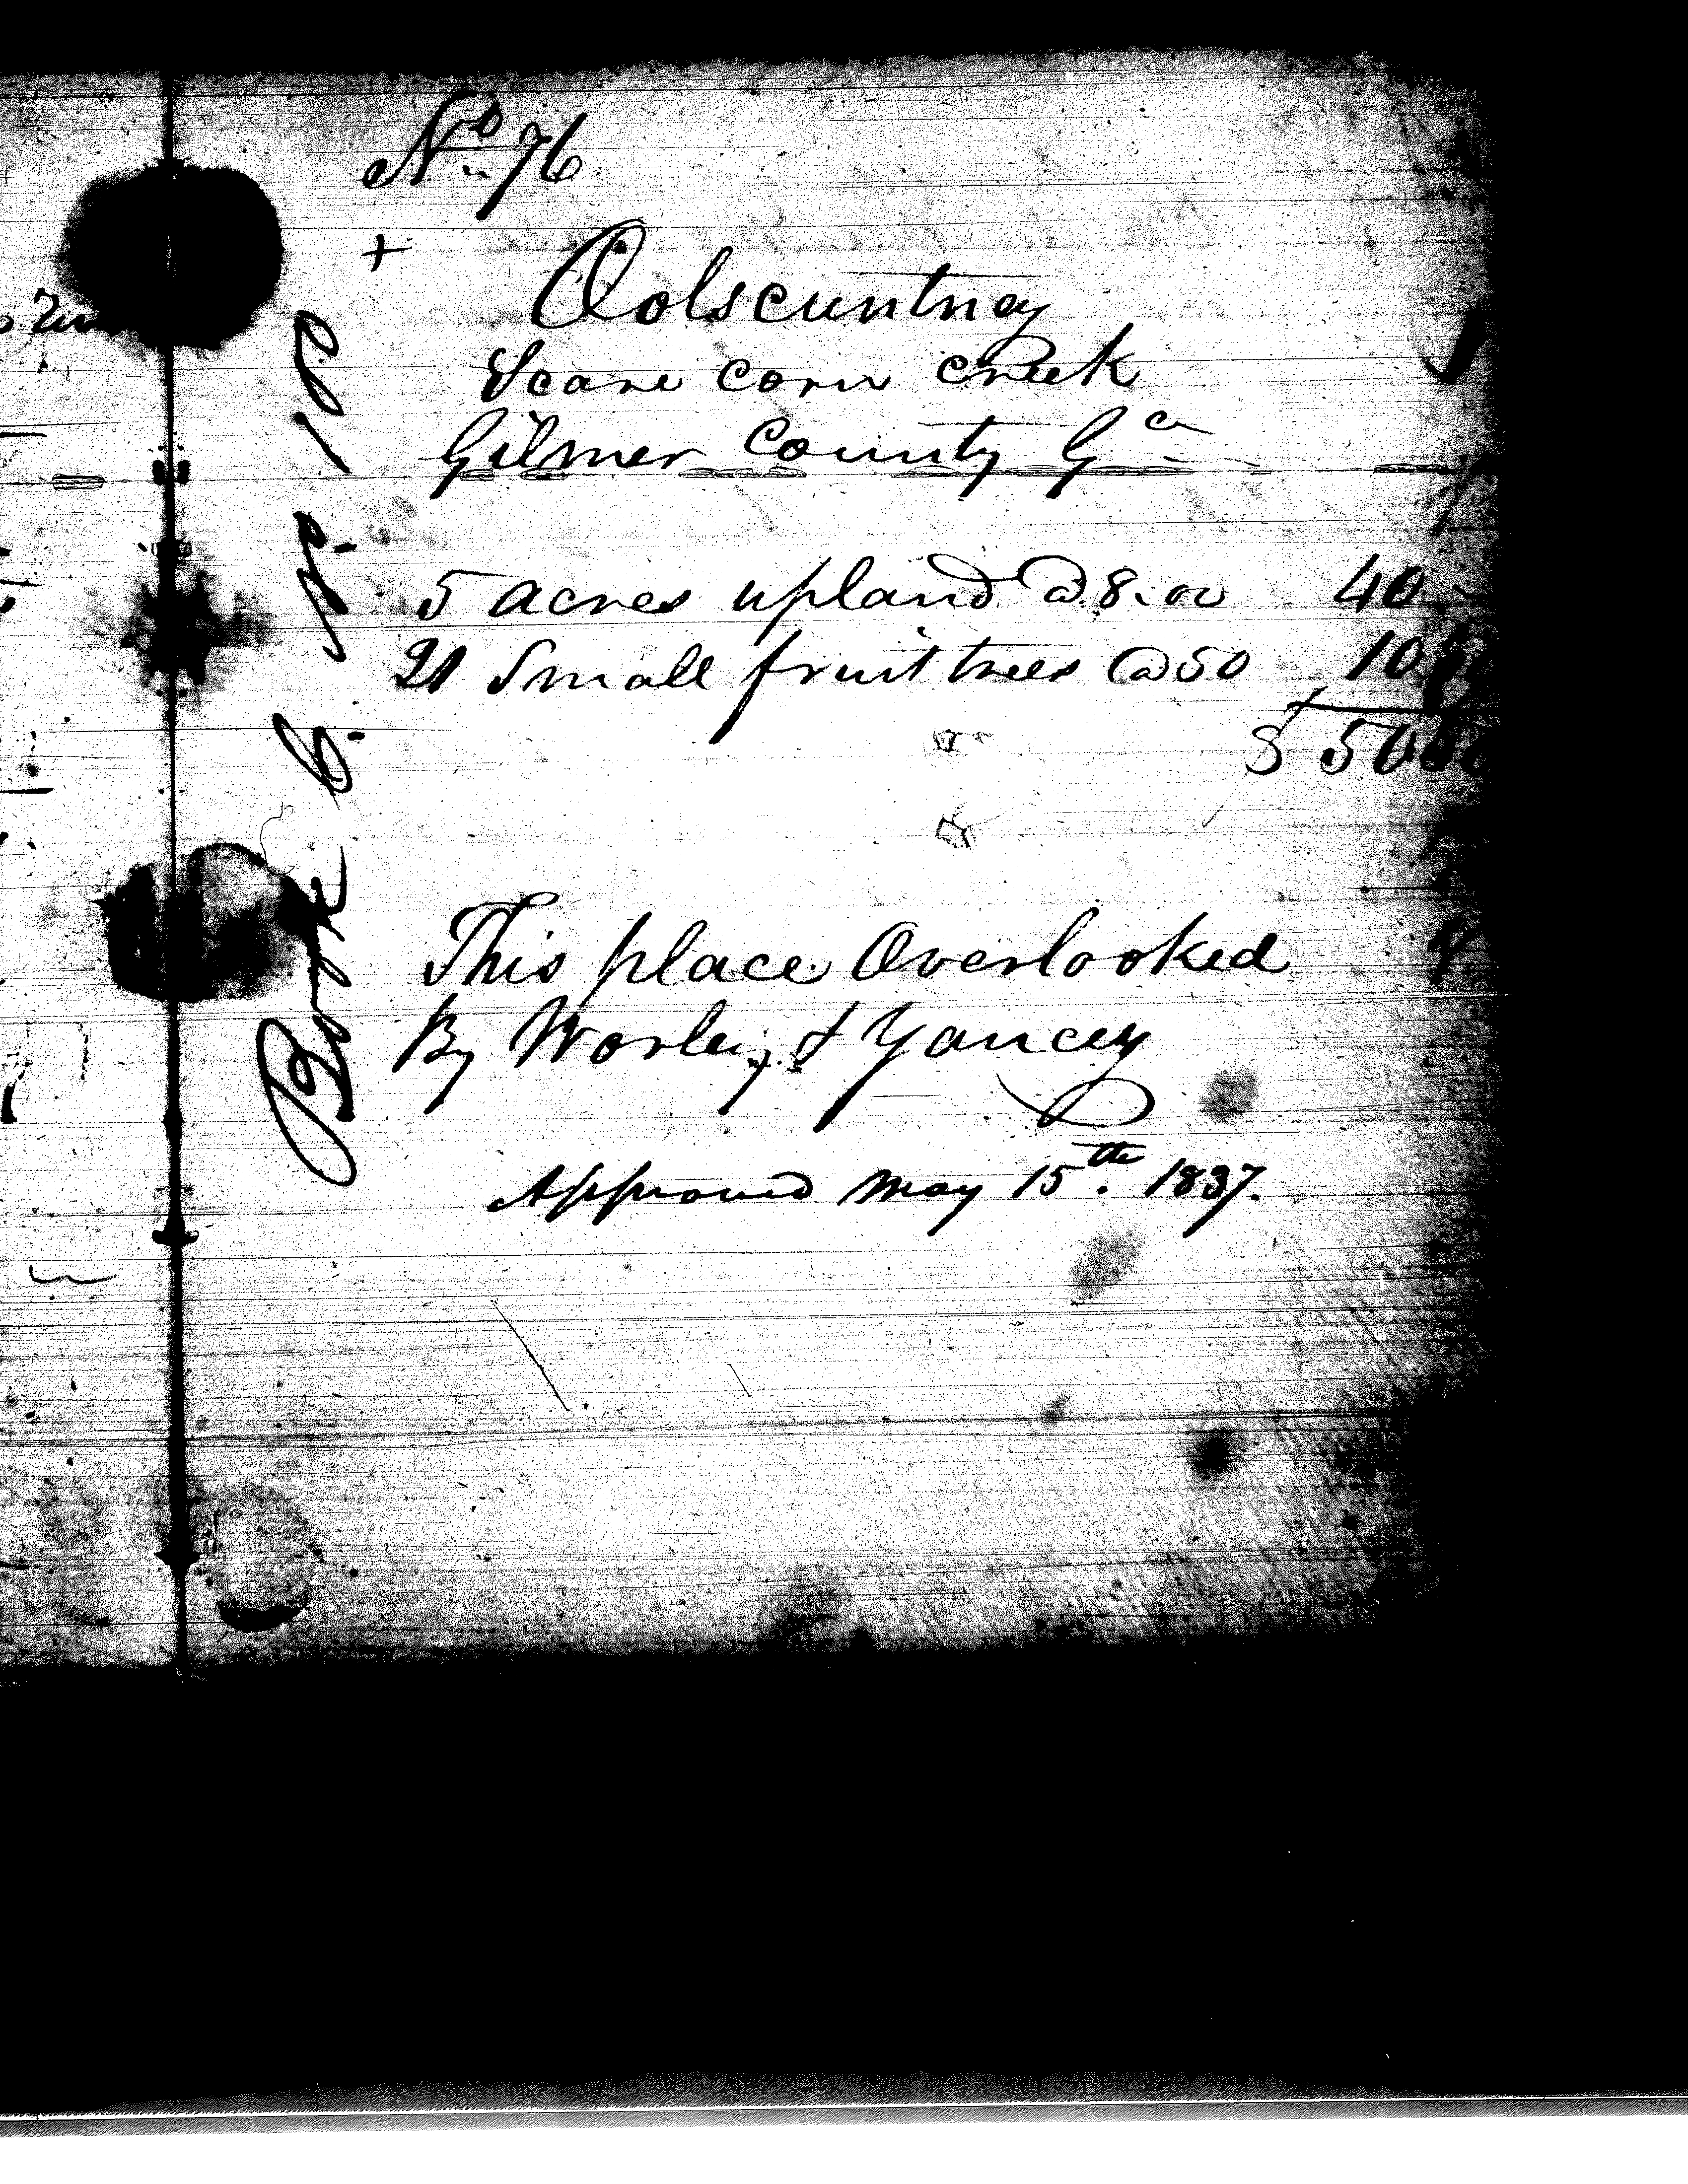 No 76
+
Oolscuntney
Scare Corn Creek
Gilmer County Ga
5 acres upland @ 8.00 40
21 Small fruit trees @ 50 10.50
$ 50.50
This place Overlooked
By Worley & Yancey
Approved May 15th. 1837.
Book C.